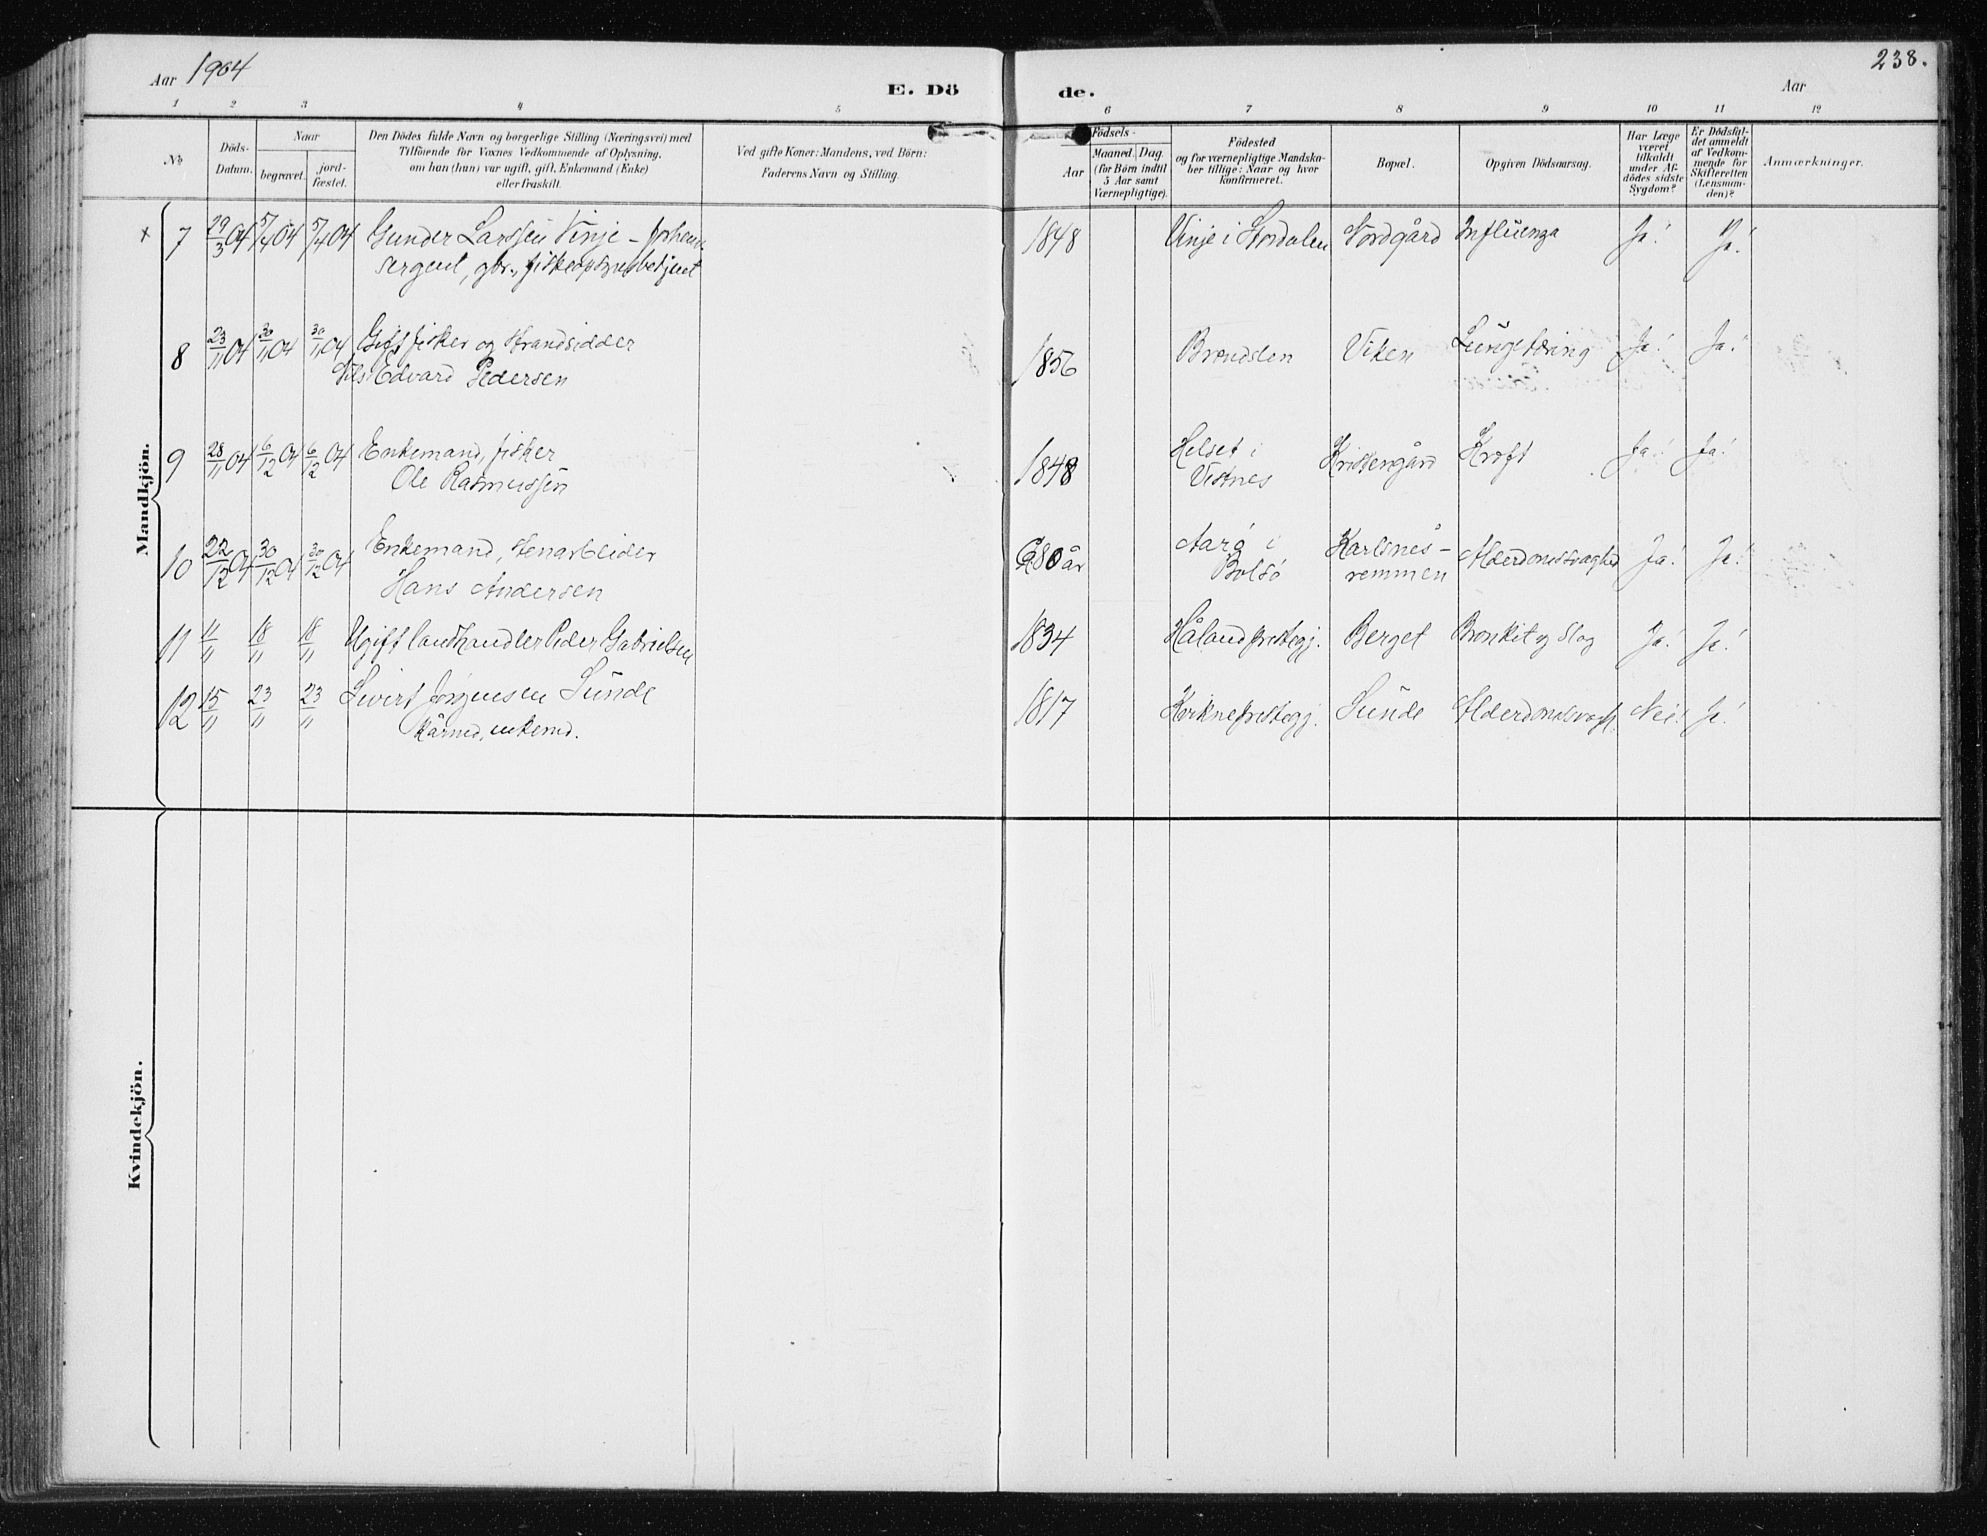 Aar 1904
238.
E. Dö de.
Aar
1 2 3 4 5 6 7 8 9 10 11 12
No
Döds-Datum.
Naar
begravet.
jord-fæstet.
Den Dödes fulde Navn og borgerlige Stilling (Næringsvei) med
Tilföiende for Voxnes Vedkommende af Oplysning,
om han (hun) var ugift, gift, Enkemand (Enke)
eller fraskilt.
Ved gifte Koner: Mandens, ved Börn:
Faderens Navn og Stilling.
Födsels-
Aar
Maaned. Dag.
(for Børn indtil
5 Aar samt
Værnepligtige).
Födested
og for værnepligtige Mandska-
ber tillige: Naar og hvor
konfirmeret.
Bopæl.
Opgiven Dödsaarsag.
Har Læge
været
tilkaldt
under Af-
dödes sidste
Sygdom?
Er Dödsfal-
det anmeldt
af Vedkom-
mende for
Skifteretten
(Lensman-
den)?
Anmærkninger.
Mandkjön.
x 7 29/3 04 5/4 04 5/4 04 Gunder Larssen Vinje - 1848 Vinje i Stordalen Nordgård Influenza Ja! Ja!
sergent, gbr., fiskeopsynsbetjent
8 23/11 04 30/11 04 30/11 04 Gift fisker og Strandsidder 1856 Viken Lungetæring Ja! Ja!
Nils Edvard Pedersen
9 28/11 04 6/12 04 6/12 04 Enkemand, fisker 1848 Helset i Kristengård Kræft Ja! Ja!
Ole Rasmussen Vestnes
10 22/12 04 30/12 04 30/12 04 Enkemand, Stenarbeider 80 år Aarö i Karlsnes- Alderdomssvaghed Ja! Ja!
Hans Andersen Bolsö remmen
11 11/11 18/11 18/11 Ugift landhandler Peder Gabrielsen 1834 Håland prestegj. Berget Bronkit og Slag Ja! Ja!
12 15/11 23/11 23/11 Sivert Jörgensen Sunde 1817 prestegj. Sunde Nei! Ja!
kårmd, enkemd.
Kvindekjön.